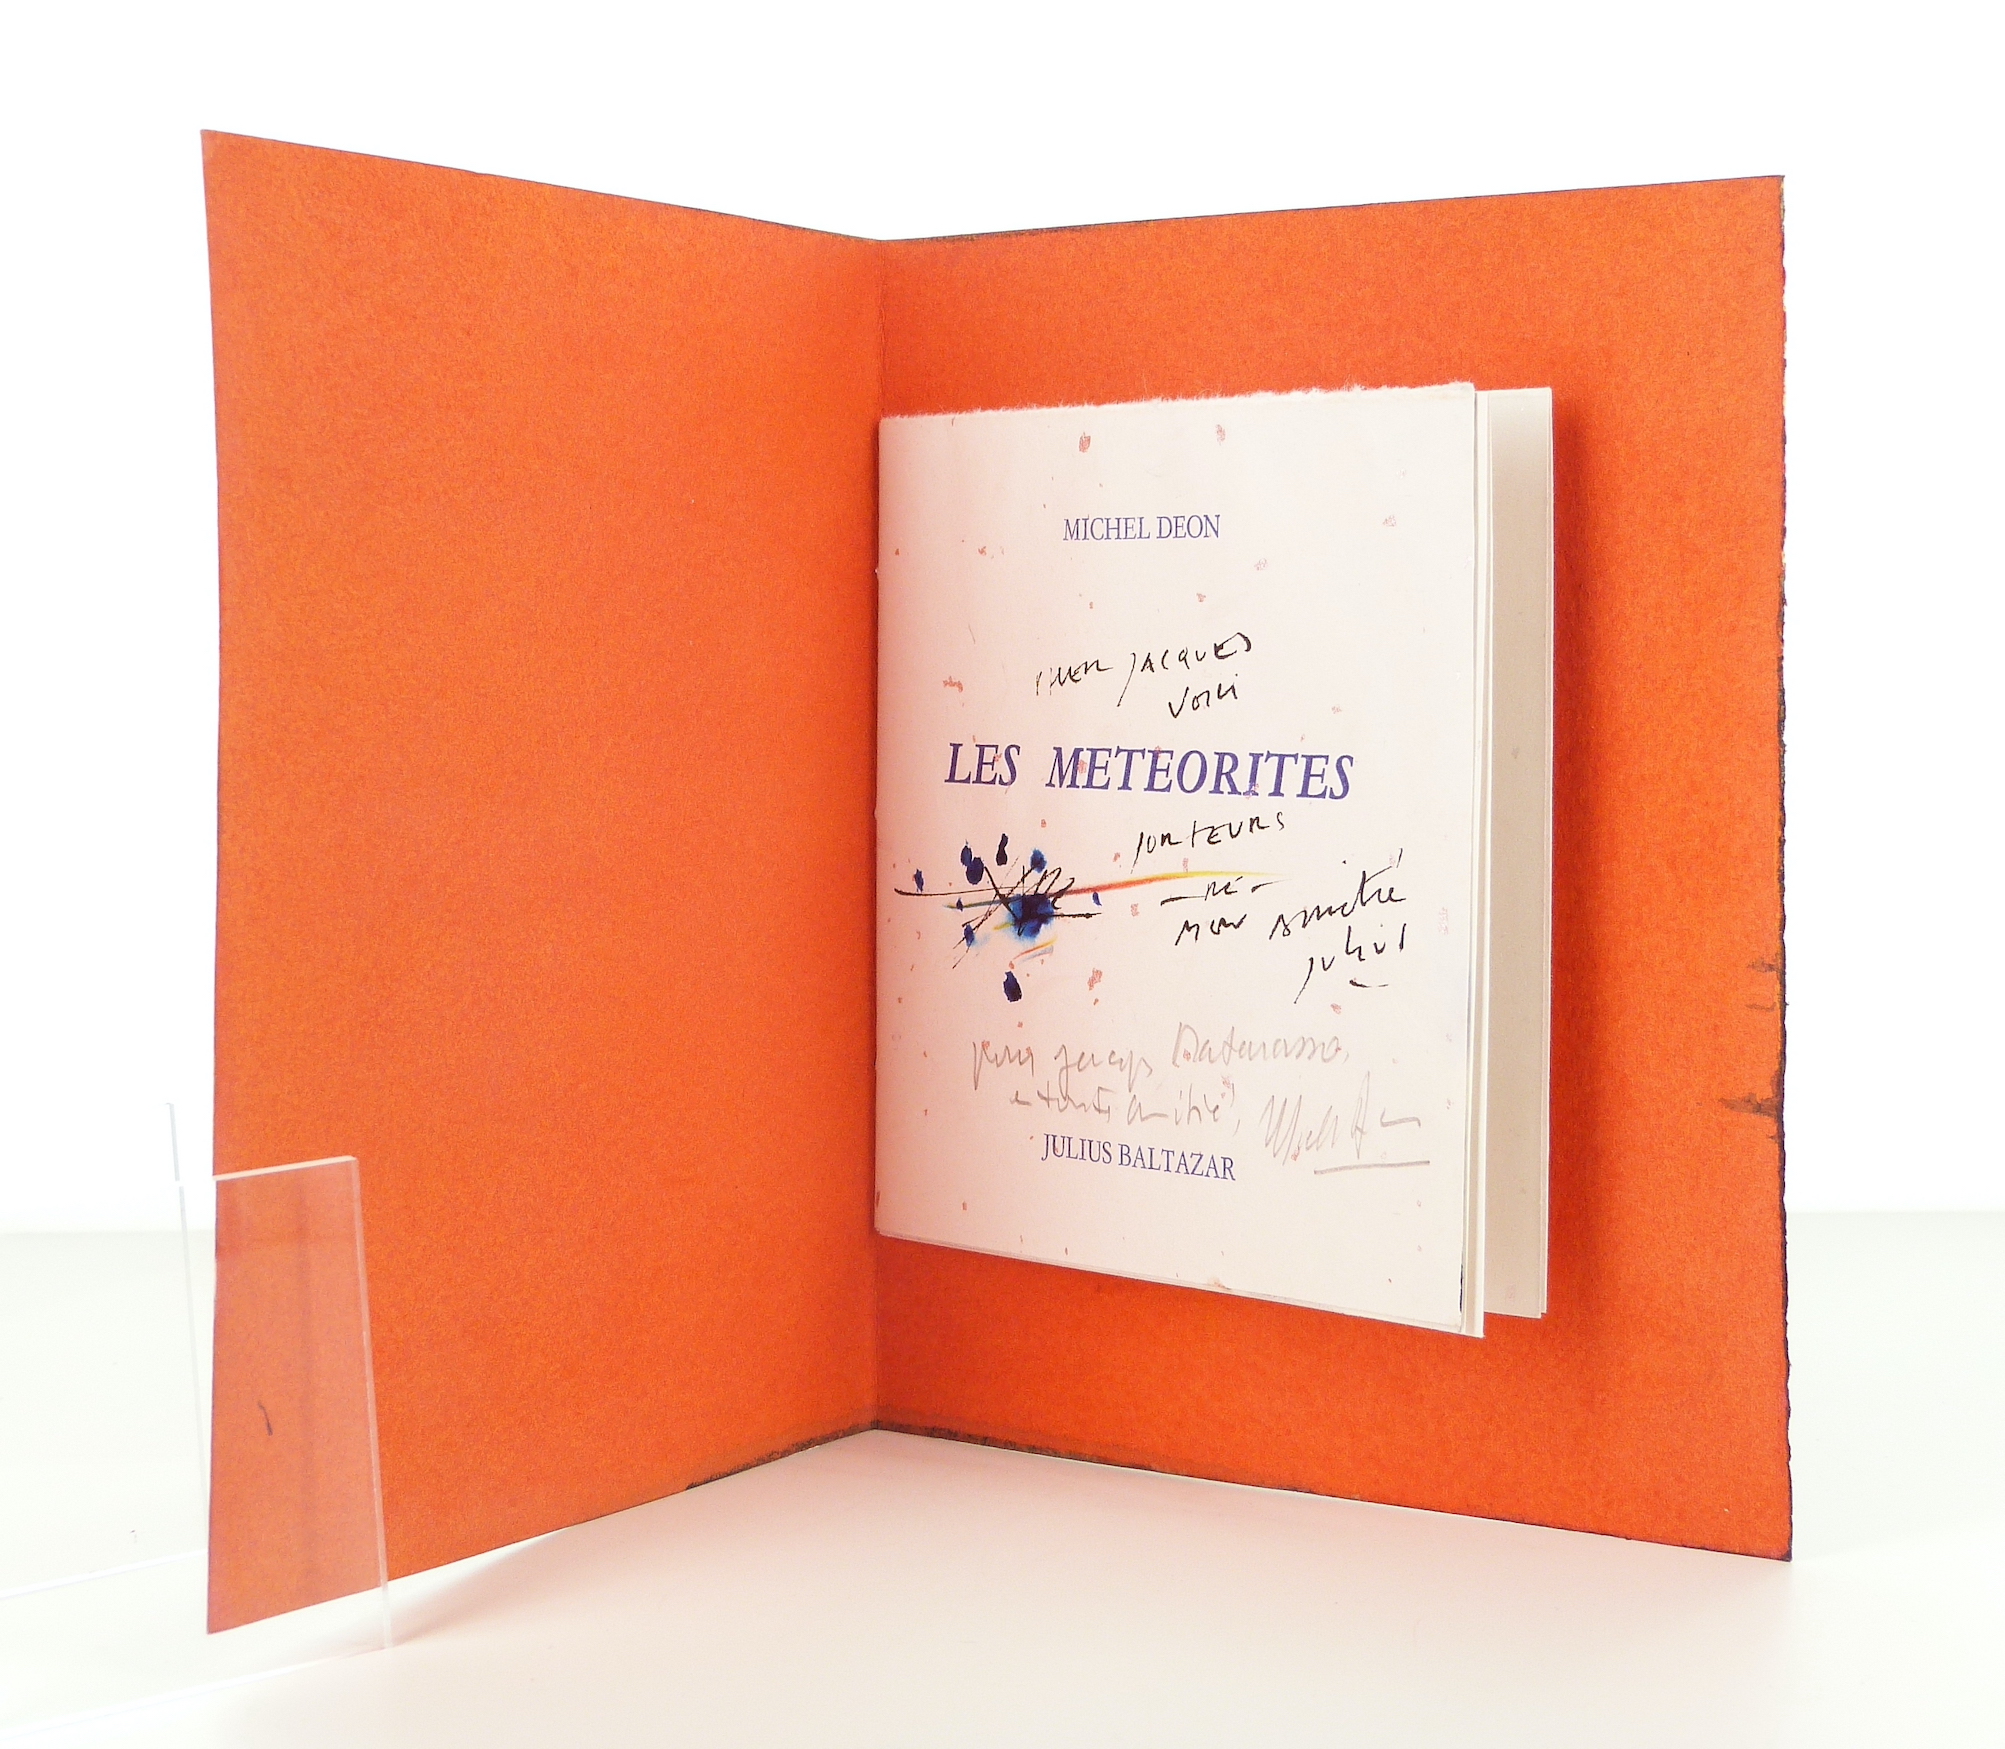 MICHEL DEON
CHER JACQUES
VOICI
LES METEORITES
PORTEURS
DE
MON AMITIÉ
JULIUS
pour Jacques Matarasso,
en toute amitié,
JULIUS BALTAZAR